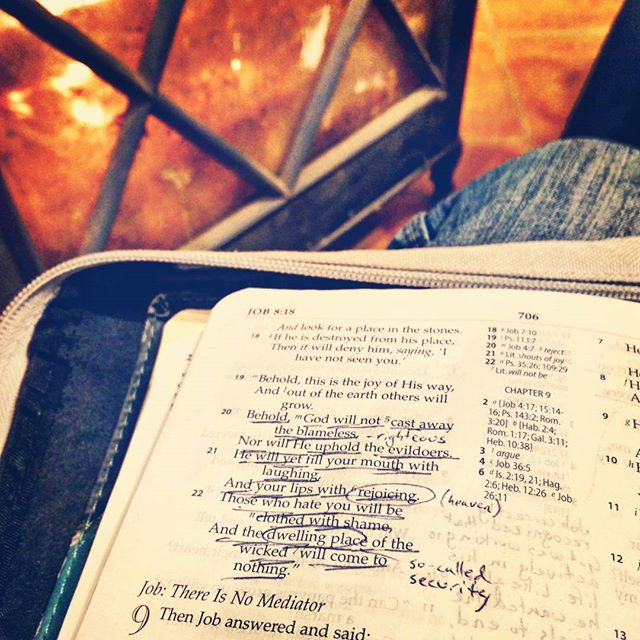 JOB 8:18
706
And look for a place in the stones.
18 If he is destroyed from his place,
Then it will deny him, saying, 'I
have not seen you.'
19 "Behold, this is the joy of His way,
And out of the earth others will
grow.
20 Behold, God will not cast away
the blameless, - righteous
Nor will He uphold the evildoers.
21 He will yet fill your mouth with
laughing,
And your lips with rejoicing. (heaven)
22 Those who hate you will be
clothed with shame,
And the dwelling place of the
wicked will come to
nothing."
so-called
security
Job: There Is No Mediator
9 Then Job answered and said:
18 Job 7:10
19 Ps. 113:7
20 Job 4:7 reject
21 Lit. shouts of joy
22 Ps. 35:26; 109:29
Lit. will not be
CHAPTER 9
2 [Job 4:17; 15:14-
16; Ps. 143:2; Rom.
3:20] [Hab. 2:4;
Rom. 1:17; Gal. 3:11;
Heb. 10:38]
3 argue
4 Job 36:5
6 Is. 2:19, 21; Hag.
2:6; Heb. 12:26 Job
26:11
7
8
9
10
11
12
13